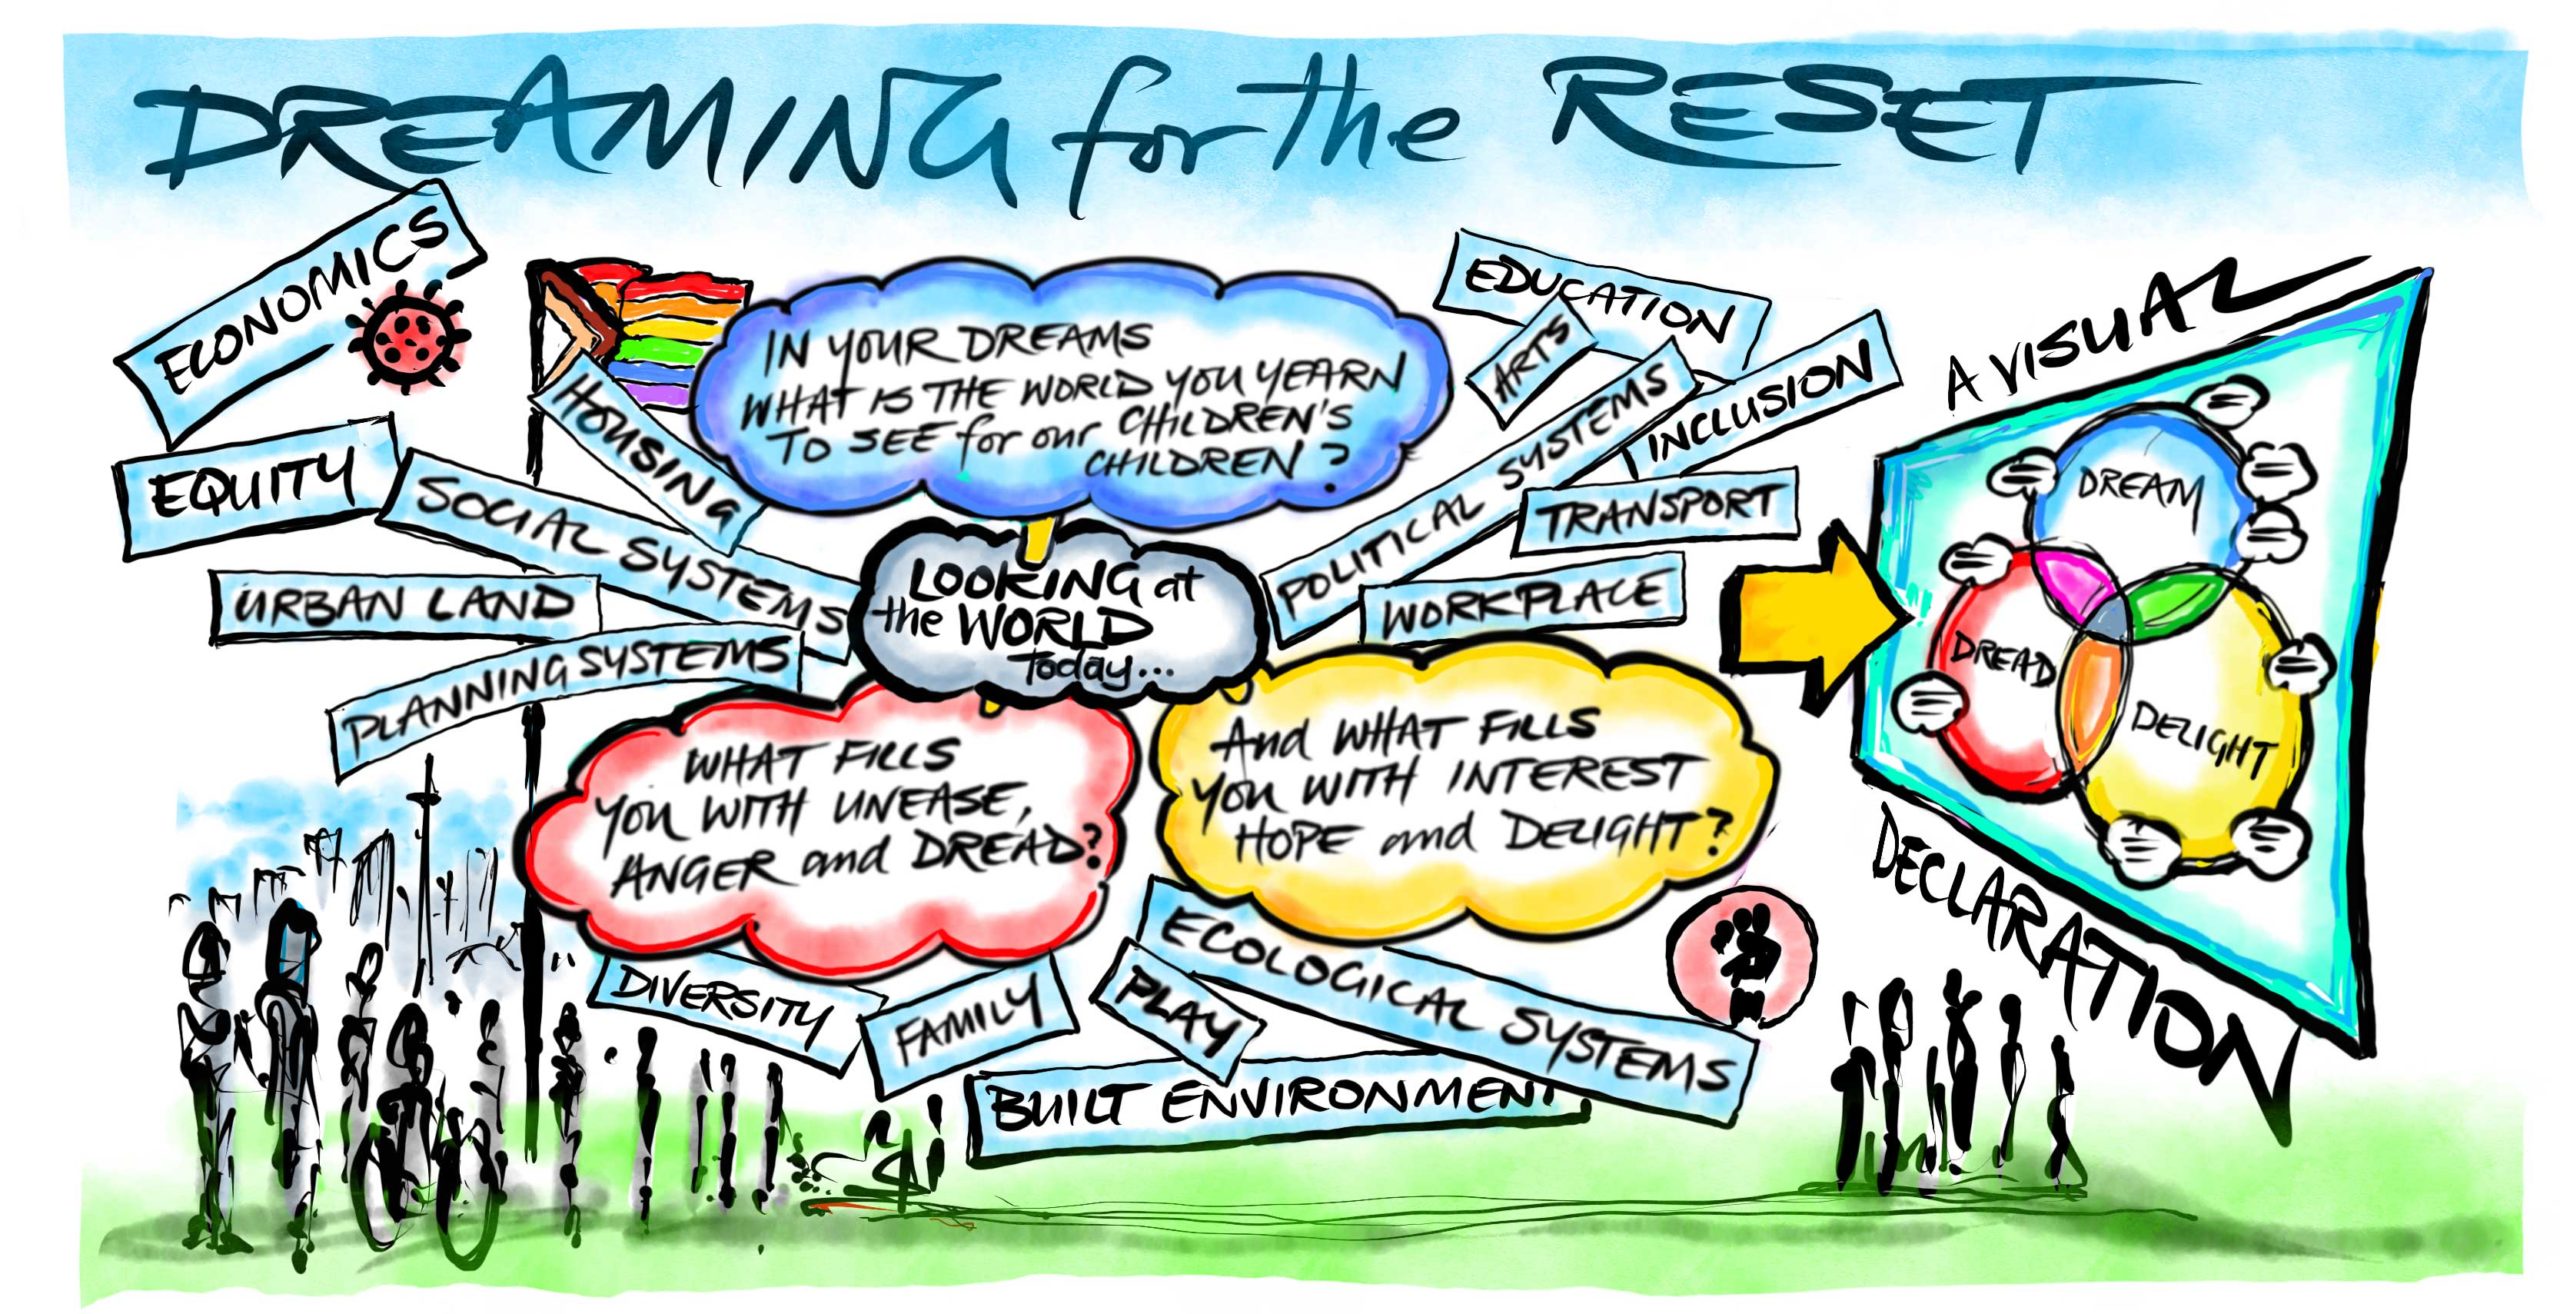 DREAMING for the RESET
ECONOMICS
EQUITY
HOUSING
SOCIAL SYSTEMS
URBAN LAND
PLANNING SYSTEMS
IN YOUR DREAMS
WHAT IS THE WORLD YOU YEARN
TO SEE for our CHILDREN'S
CHILDREN?
LOOKING at
the WORLD
Today...
WHAT FILLS
YOU WITH UNEASE,
ANGER and DREAD?
And WHAT FILLS
YOU WITH INTEREST
HOPE and DELIGHT?
EDUCATION
ARTS
POLITICAL SYSTEMS
INCLUSION
TRANSPORT
WORKPLACE
DIVERSITY
FAMILY
PLAY
ECOLOGICAL SYSTEMS
BUILT ENVIRONMENT
A VISUAL
DREAM
DREAD
DELIGHT
DECLARATION